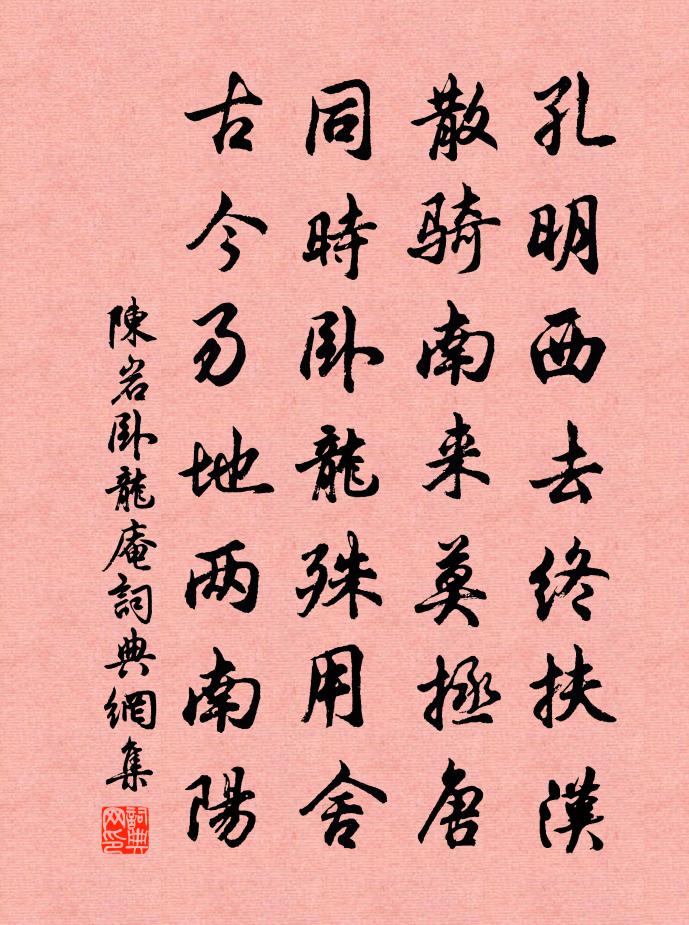 孔明西去終扶漢
散騎南来莫拯唐
同時卧龍殊用舍
古今易地两南陽
陳岩卧龍庵詞典網集
詞典网印